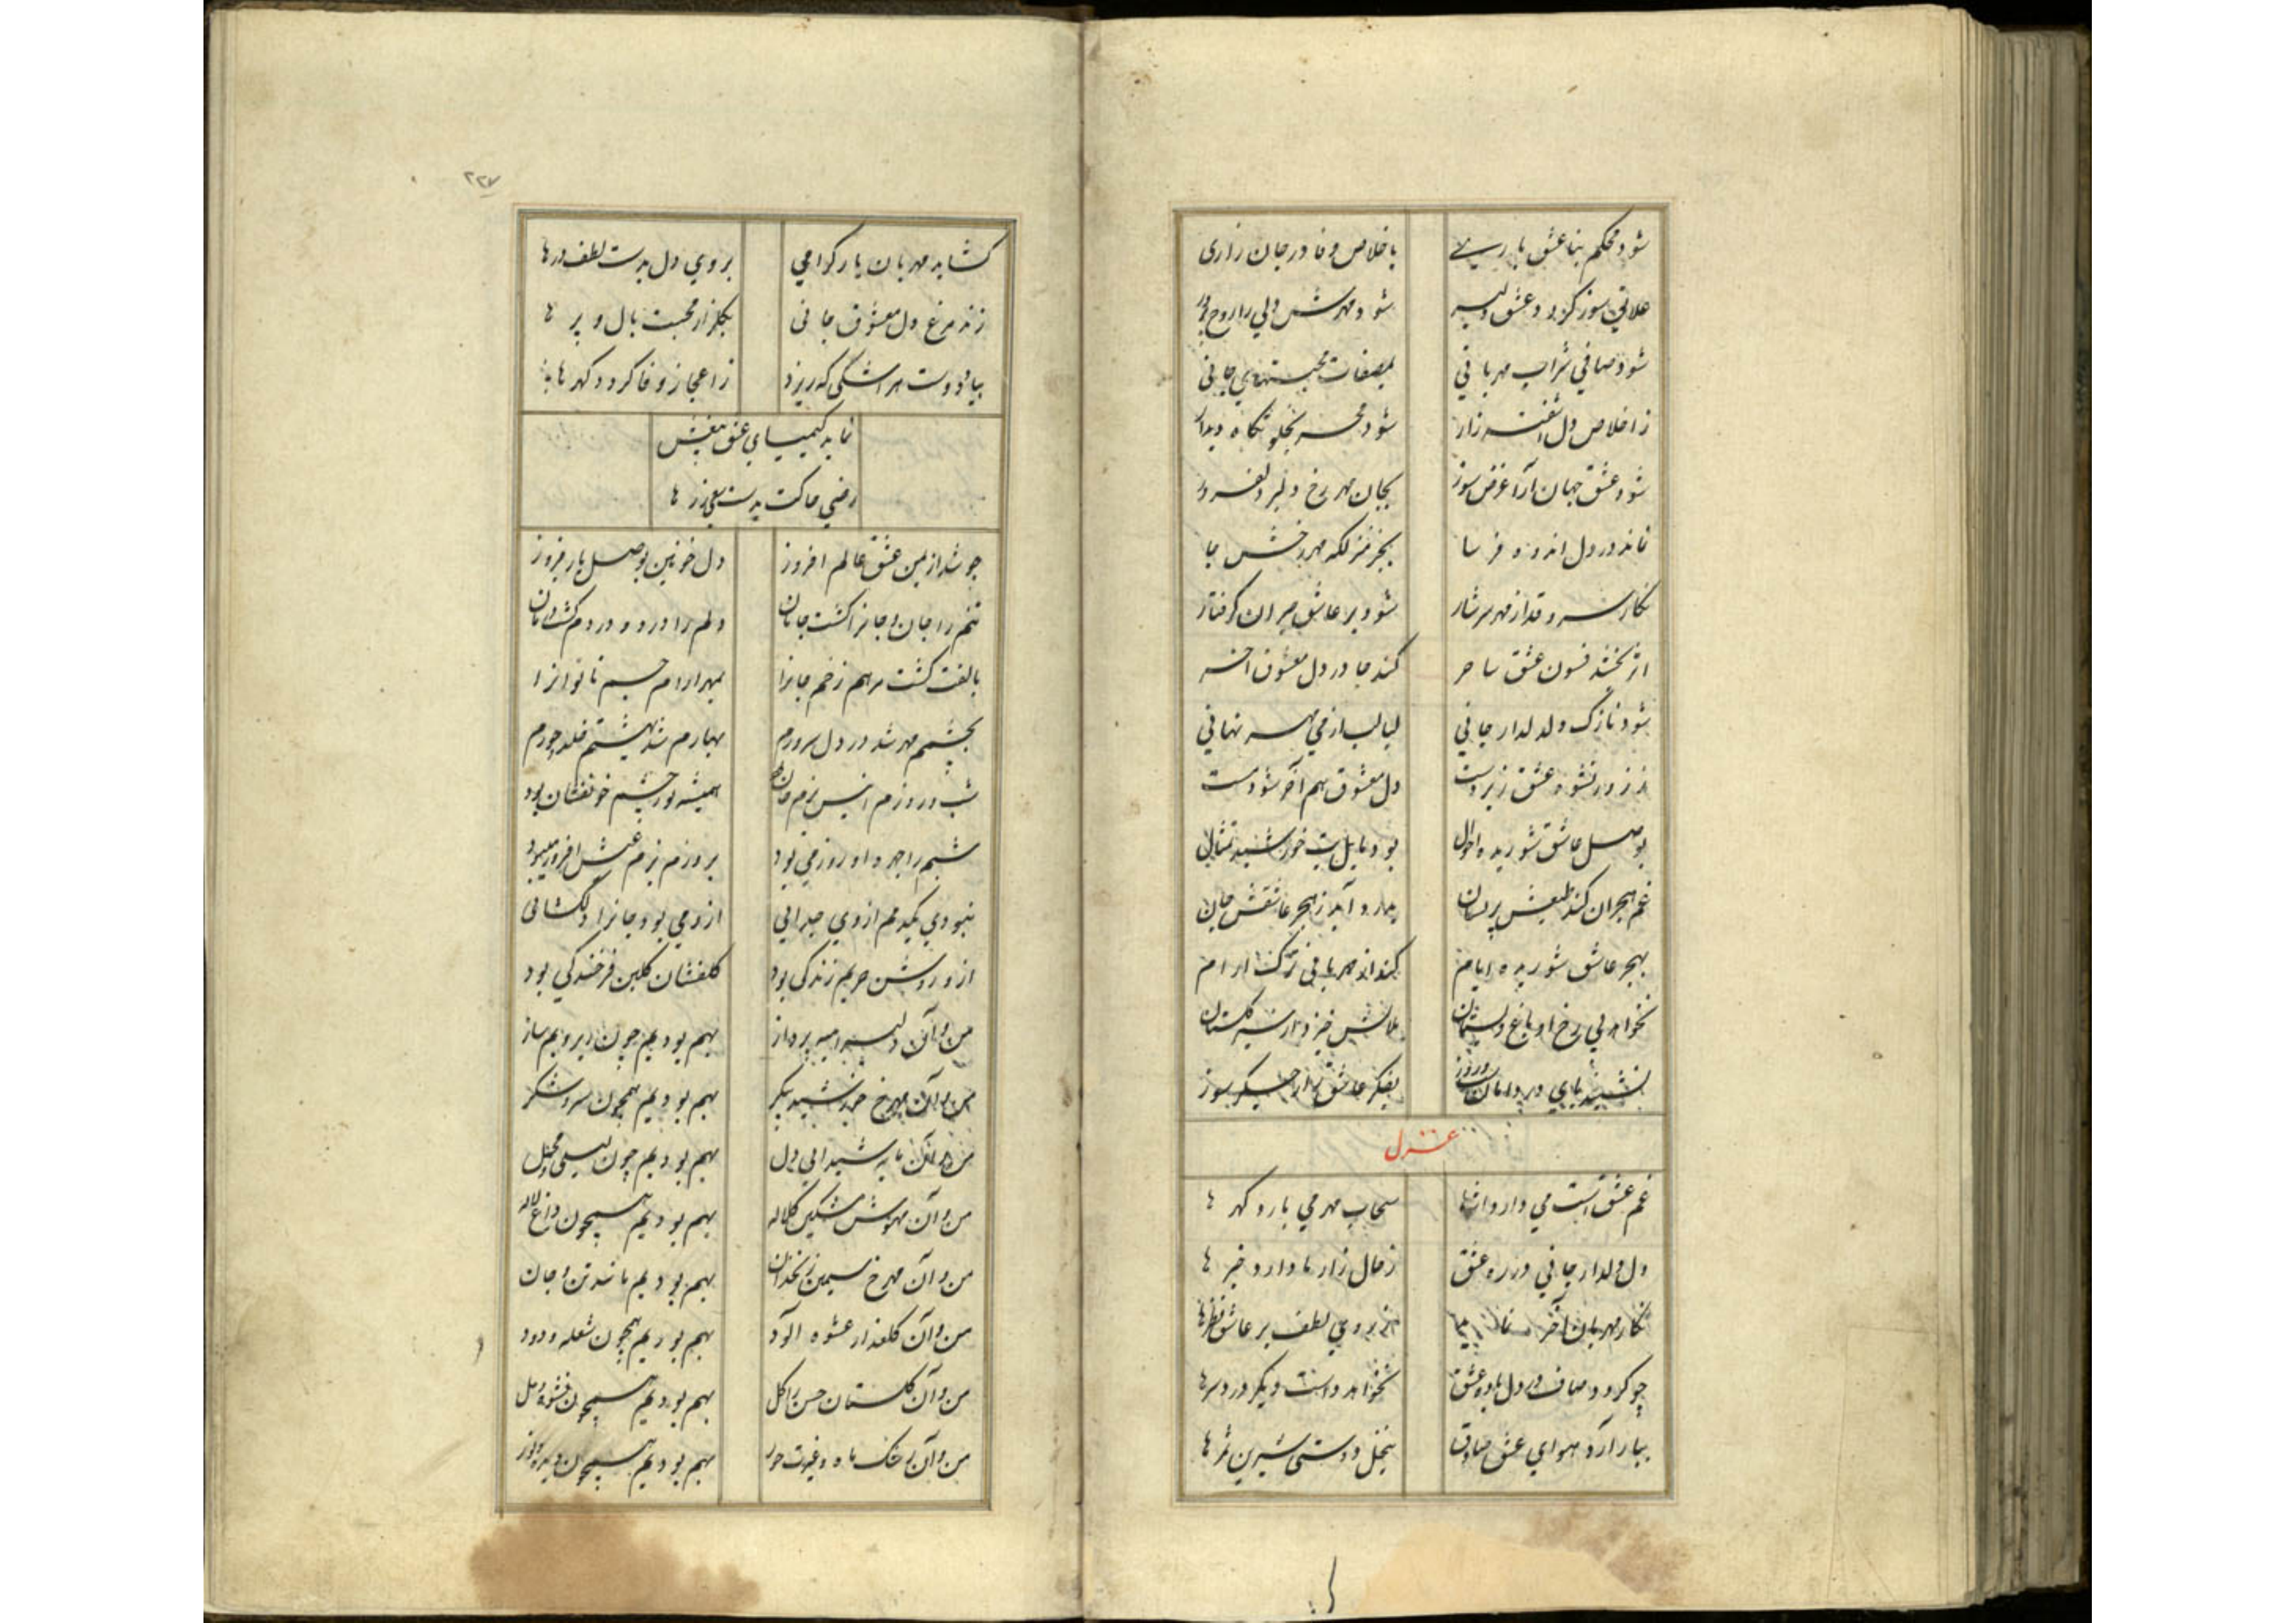 شود محکم بنا عشق یاری باخلاص و فا در جان زاری
شود مهرش ولی را روح
شود صافی شراب مهربانی
ز اخلاص دل زار شود بخلوتکاه دیدار
شود عشق جهان آرا غرض سوز بجان مهر رخ دلبر دلفروز
نماند در دل اندوه فرسا بجز جا
نکار سرو قد از مهر سرشار شود بر عاشق کرفتار
اثر بخشد فسون عشق ساحر کند جا در دل معشوق آخر
شود نازک دل دلدار جانی لبالب از می مهر نهانی
ز زور نشوه عشق زبردست دل معشوق هم آخر شود مست
بوصل عاشق شوریده احوال بود مایل بت خورشید تمثال
غم هجران کند طبعش پریشان
بهجر عاشق شوریده ایام کند از مهربانی ترک آرام
نخواهد بی رخ او باغ و بستان
نشیند پای در دامان بفکر عاشق زار جکر سوز
غزل
غم عشق است می دارد اثرها سحاب مهر می بارد کهرها
دل دلدار جانی در ره عشق ز حال زار ما دارد خبرها
نکار مهربان آخر ز روی لطف بر عاشق نظرها
چو کردد صاف در دل باده عشق نخواهد داشت دیکر دردسرها
ببار آرد هوای عشق صادق نخل دوستی شیرین ثمرها
۲۲۷
کشاید مهربان یار کرامی بروی دل بدست لطف درها
زند مرغ دل معشوق جانی بکلزار محبت بال و پرها
بیاد دوست هر اشکی که ریزد ز اعجاز وفا کردد کهرها
نماید کیمیای عشق فیضش
رضی خاکت بدست زرها
چو شد از یمن عشق عالم افروز دل بوصل یار فیروز
تنم را جان و جانرا کشت جانان دلم را درد و دردم کشت درمان
بالفت کشت مرهم زخم جانرا بمهر آرام جسم ناتوانرا
بچشمم مهر شد در دل سرورم بهارم شد بهشتم خلد حورم
شب و روزم انیس بزم جان همیشه نور چشم خونفشان بود
شبم را چهره او روز می بود بروزم بزم عیش افروز میبود
نبودی یکدم از وی جدایی ازو می بود جانرا دلکشائی
ازو روشن حریم زندکی بود کلفشان کلبن فرخندکی بود
من و آن دلبر پرداز بهم بودیم چون زیر و بم ساز
من و آن مهرخ خورشید پیکر بهم بودیم همچون شکر
من و آن مایه شیدایی دل بهم بودیم چون لیلی و محمل
من و آن مهوش مشکین کلاله بهم بودیم همچون داغ و لاله
من و آن مهرخ سیمین زنخدان بهم بودیم مانند تن و جان
من و آن کلعذار عشوه آلود بهم بودیم همچون شعله و دود
من و آن کلستان حسن را کل بهم بودیم همچون نشوه و مل
من و آن رشک ماه و غیرت حور بهم بودیم همچون